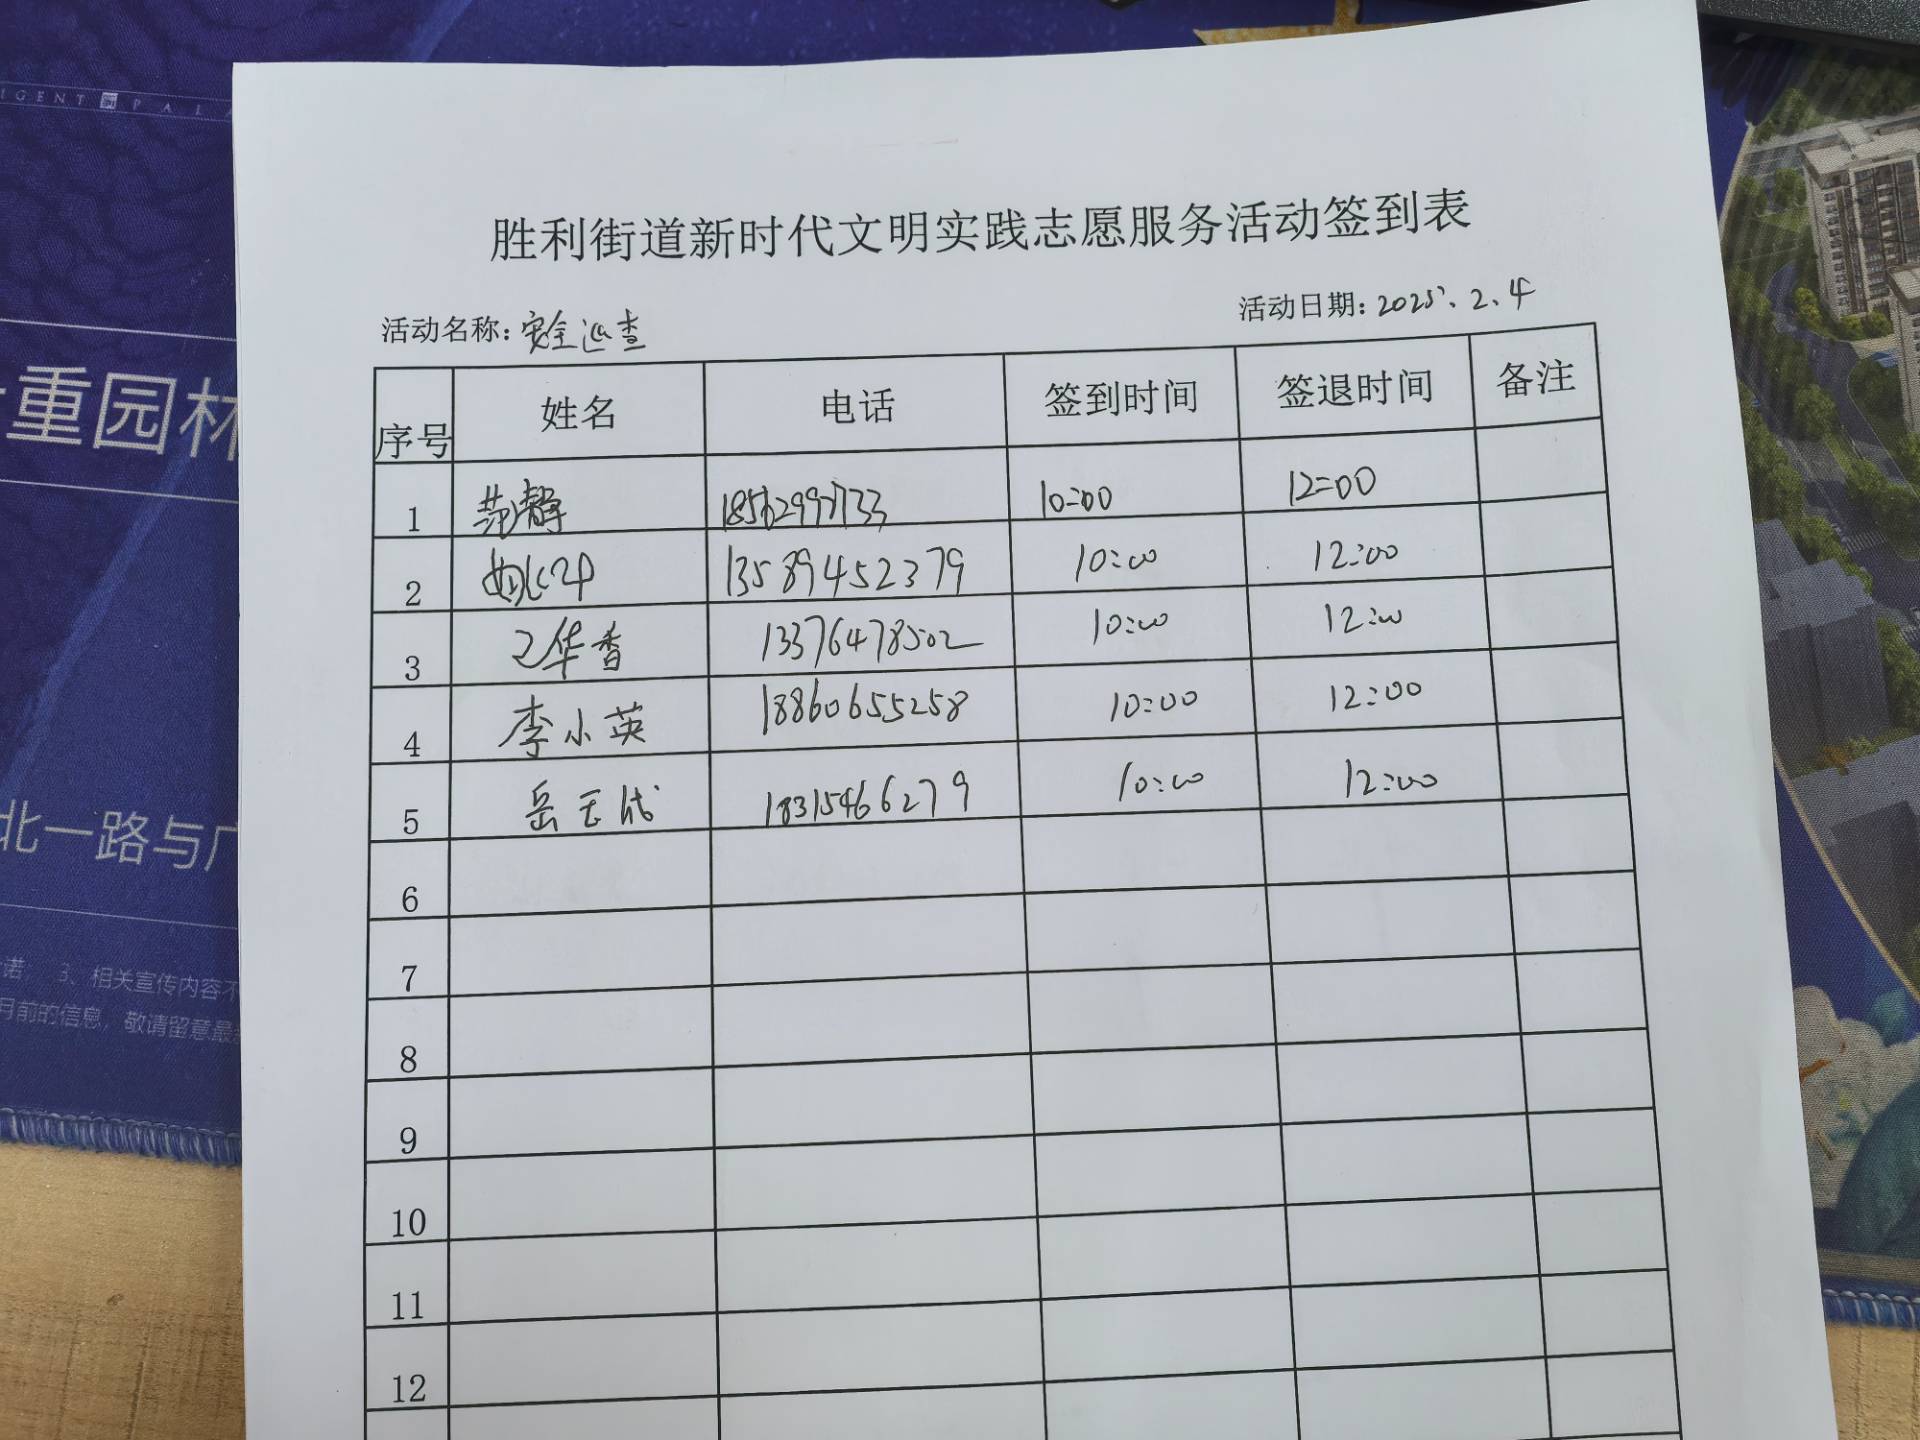 IGENT PALA
重园林
北一路与广
诺； 3、相关宣传内容不
月前的信息，敬请留意最
胜利街道新时代文明实践志愿服务活动签到表
活动名称：安全巡查 活动日期：2025.2.4
序号 姓名 电话 签到时间 签退时间 备注
1 范静 10:00 12:00
2 13589452379 10:00 12:00
3 华香 13376478502 10:00 12:00
4 李小英 18860655258 10:00 12:00
5 岳玉 18315466279 10:00 12:00
6
7
8
9
10
11
12